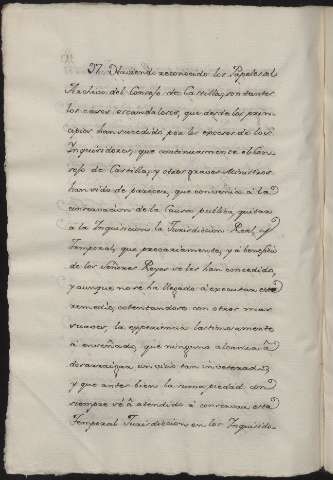 37. Haviendo reconocido los Papeles del
Archivo del Consejo de Castilla, son tantos
los casos escandalosos, que desde los prin-
cipios han sucedido por los excesos de los
Inquisidores, que continuamente el Con-
sejo de Castilla, y otros graves Ministros
han sido de parecer, que convenia á la
conservacion de la Causa publica, quitar
á la Inquisicion la Jurisdiccion Real, y
Temporal, que precariamente, y á beneficio
de los Señores Reyes se les han concedido,
y aunque no se ha llegado á executar este
remedio, contentandose con otros mas
suaves, la experiencia lastimosamente
á enseñado, que ninguno alcanza á
desarraigar un vicio tan inveterado,
y que antes bien la suma piedad con
siempre se á atendido á conservar esta
Temporal Jurisdiccion en los Inquisido-